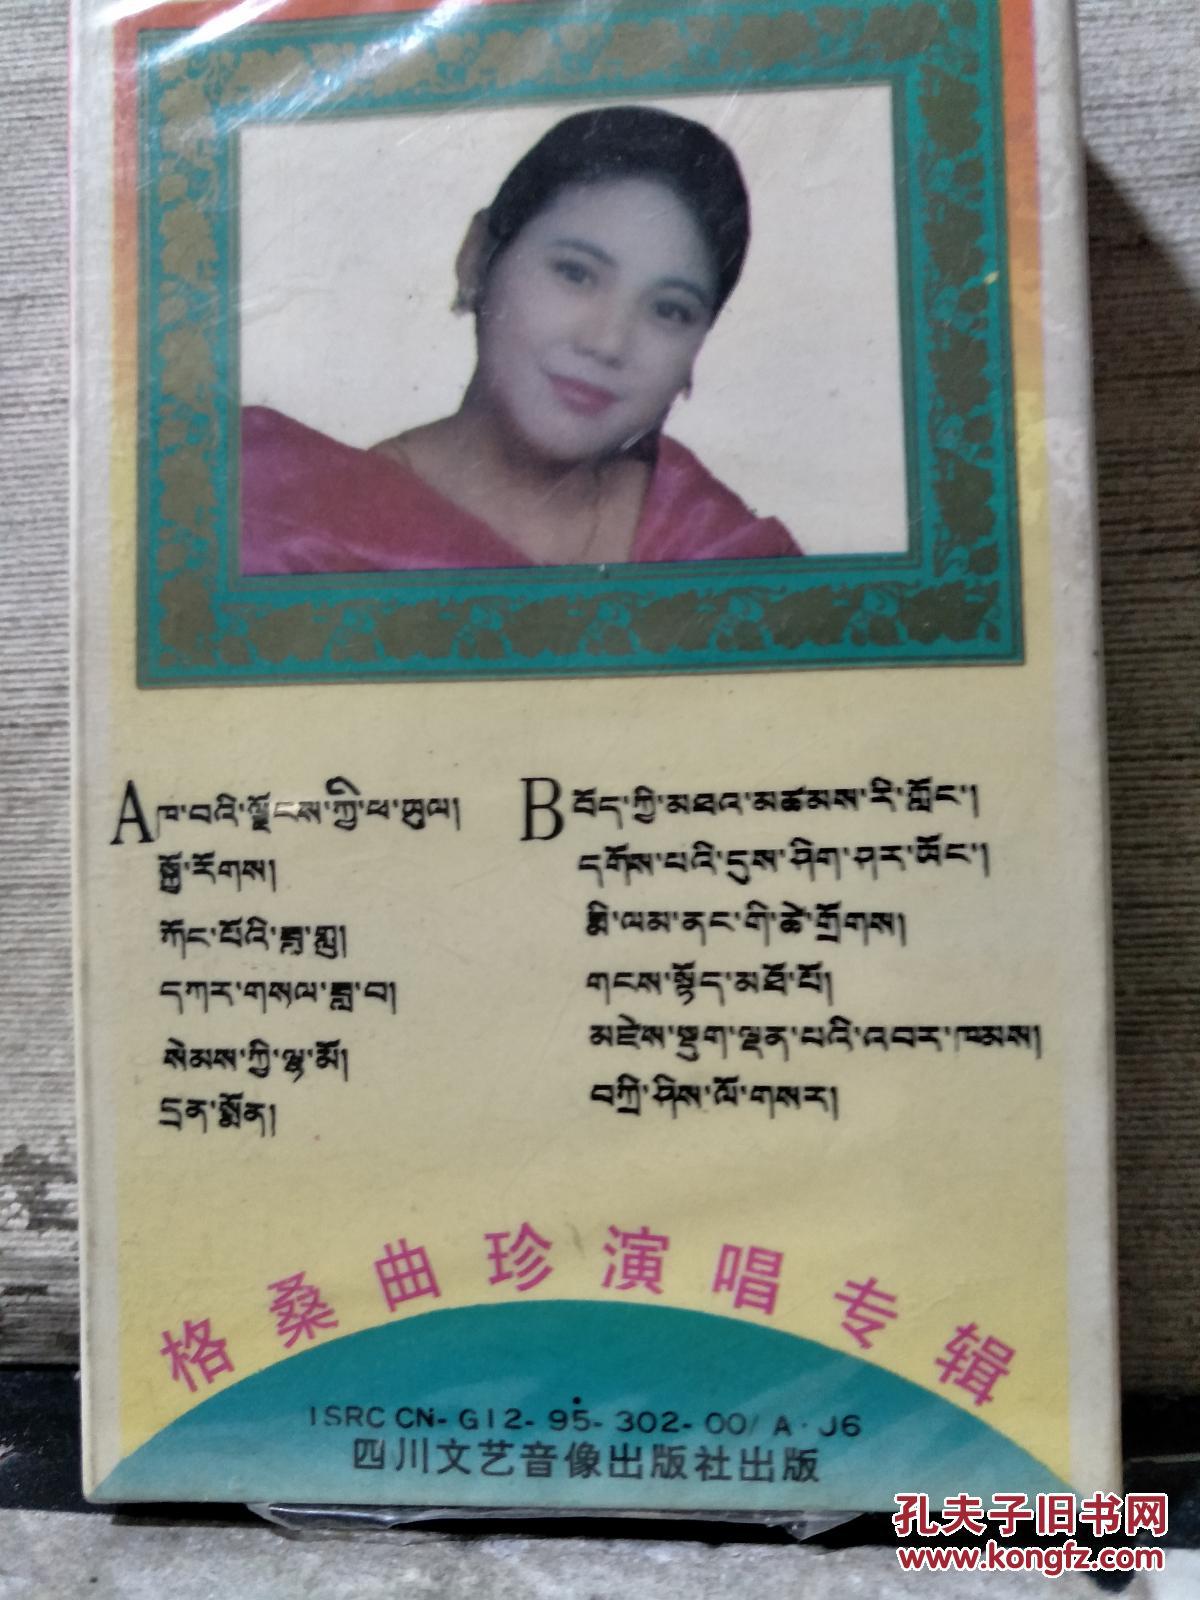 A ཁ་བའི་ལྗོངས་ཀྱི་ཕ་ཡུལ།
སྒྱུ་རོགས།
ཀོང་པོའི་རྒྱ་གླུ།
དཀར་གསལ་ཟླ་བ།
སེམས་ཀྱི་ལྷ་མོ།
དྲན་སྨོན།
B བོད་ཀྱི་མཐའ་མཚམས་རི་ཀློང་།
དགོས་པའི་དུས་ཤིག་ཤར་ཡོང་།
རྨི་ལམ་ནང་གི་ཚེ་གྲོགས།
གངས་སྟོད་མཐོ་པོ།
མཛེས་སྡུག་ལྡན་པའི་འབར་ཁམས།
བཀྲ་ཤིས་ལོ་གསར།
格桑曲珍演唱专辑
ISRC CN-G12-95-302-00/A·J6
四川文艺音像出版社出版
孔夫子旧书网
www.kongfz.com